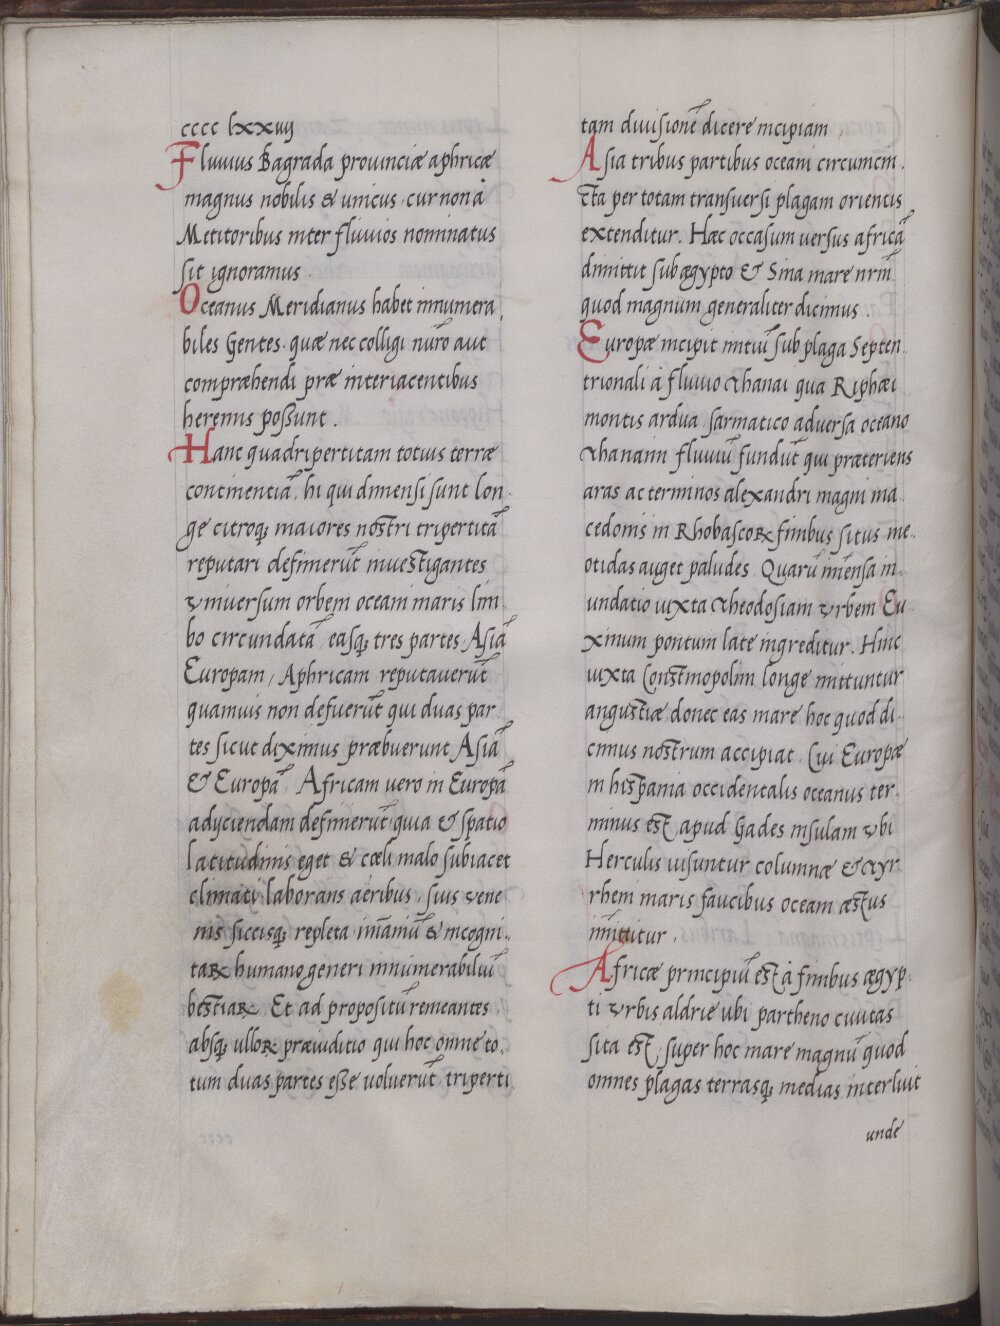 cccc lxxiiij
Fluuius Bagrada prouinciæ aphricæ
magnus nobilis & unicus · cur non à
Metitoribus inter fluuios nominatus
sit ignoramus .
Oceanus Meridianus habet innumera
biles Gentes · quæ nec colligi nr̃o aut
compræhendi præ interiacentibus
heremis possunt .
Hanc quadripertitam totius terræ
continentiã, hi qui dimensi sunt lon-
ge citroq; maiores nostri tripertitã
reputari definerũt inuestigantes
vniuersum orbem oceani maris lim
bo circundatã easq; tres partes Asiã
Europam, Aphricam reputauerũt
quamuis non defuerũt qui duas par
tes sicut diximus præbuerunt Asiã
& Europã Africam uero in Europã
adijciendam definerũt quia & spatio
latitudinis eget & cœli malo subiacet
climati laborans aëribus, siuis vene
nis siccisq; repleta im̃amiũ & incogni-
taꝝ humano generi innumerabiliũ
bestiaꝝ. Et ad propositũ remeantes
absq; ulloꝝ præiuditio qui hoc omne to-
tum duas partes esse uoluerũt, triperti
tam diuisionẽ dicere incipiam
Asia tribus partibus oceani circumcin-
cta per totam transuersi plagam orientis
extenditur. Hæc occasum uersus africã
dimittit sub ægypto & Sina mare nr̃m
quod magnum generaliter dicimus .
Europæ incipit initiũ sub plaga Septen-
trionali à fluuio Thanai qua Riphæi
montis ardua sarmatico aduersa oceano
Thanaim fluuiũ fundũt qui præteriens
aras ac terminos alexandri magni ma-
cedonis in Rhobascoꝝ finibus situs me-
otidas auget paludes. Quarũ im̃ensa in-
undatio iuxta Theodosiam vrbem Eu-
xinum pontum late ingreditur. Hinc
iuxta Constinopolim longe mittuntur
angustiæ donec eas mare hoc quod di-
cimus nostrum accipiat. Cui Europæ
in hispania occidentalis oceanus ter-
minus est, apud Gades insulam vbi
Herculis uisuntur columnæ & Tyr-
rhem maris faucibus oceani æstus
im̃ittitur .
Africæ principiũ est à finibus ægyp-
ti vrbis aldrie ubi partheno ciuitas
sita est, super hoc mare magnũ quod
omnes plagas terrasq; medias interluit
unde